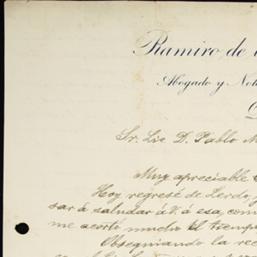 Ramiro de
Abogado y Not
Sr. Lic D. Pablo M
Muy apreciable
Hoy regresé de Lerdo y
sar á saludar á V. á esa, com
me acortó mucho el tiemp
Obsequiando la rec